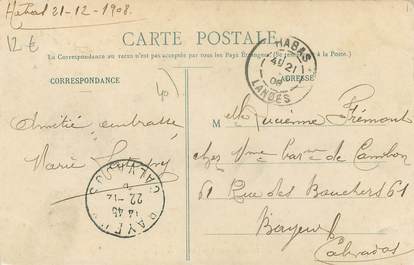 Habas 21-12-1908.
12 €
CARTE POSTALE
La Correspondance au verso n'est pas acceptée par tous les Pays Étrangers. (Se renseigner à la Poste).
CORRESPONDANCE
ADRESSE
HABAS
21
08
LANDES
40
Amitié, embrasse
Marie
M elle Lucienne Frémont
chez Mme Bar nne de Cambon
61 Rue des Bouchers 61
Bayeux
Calvados
BAYEUX
14 45
22 - 12
CALVADOS